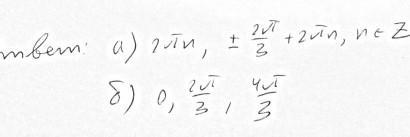 твет: а) 2πn, ± 2π/3 + 2πn, n ∈ Z
б) 0, 2π/3, 4π/3